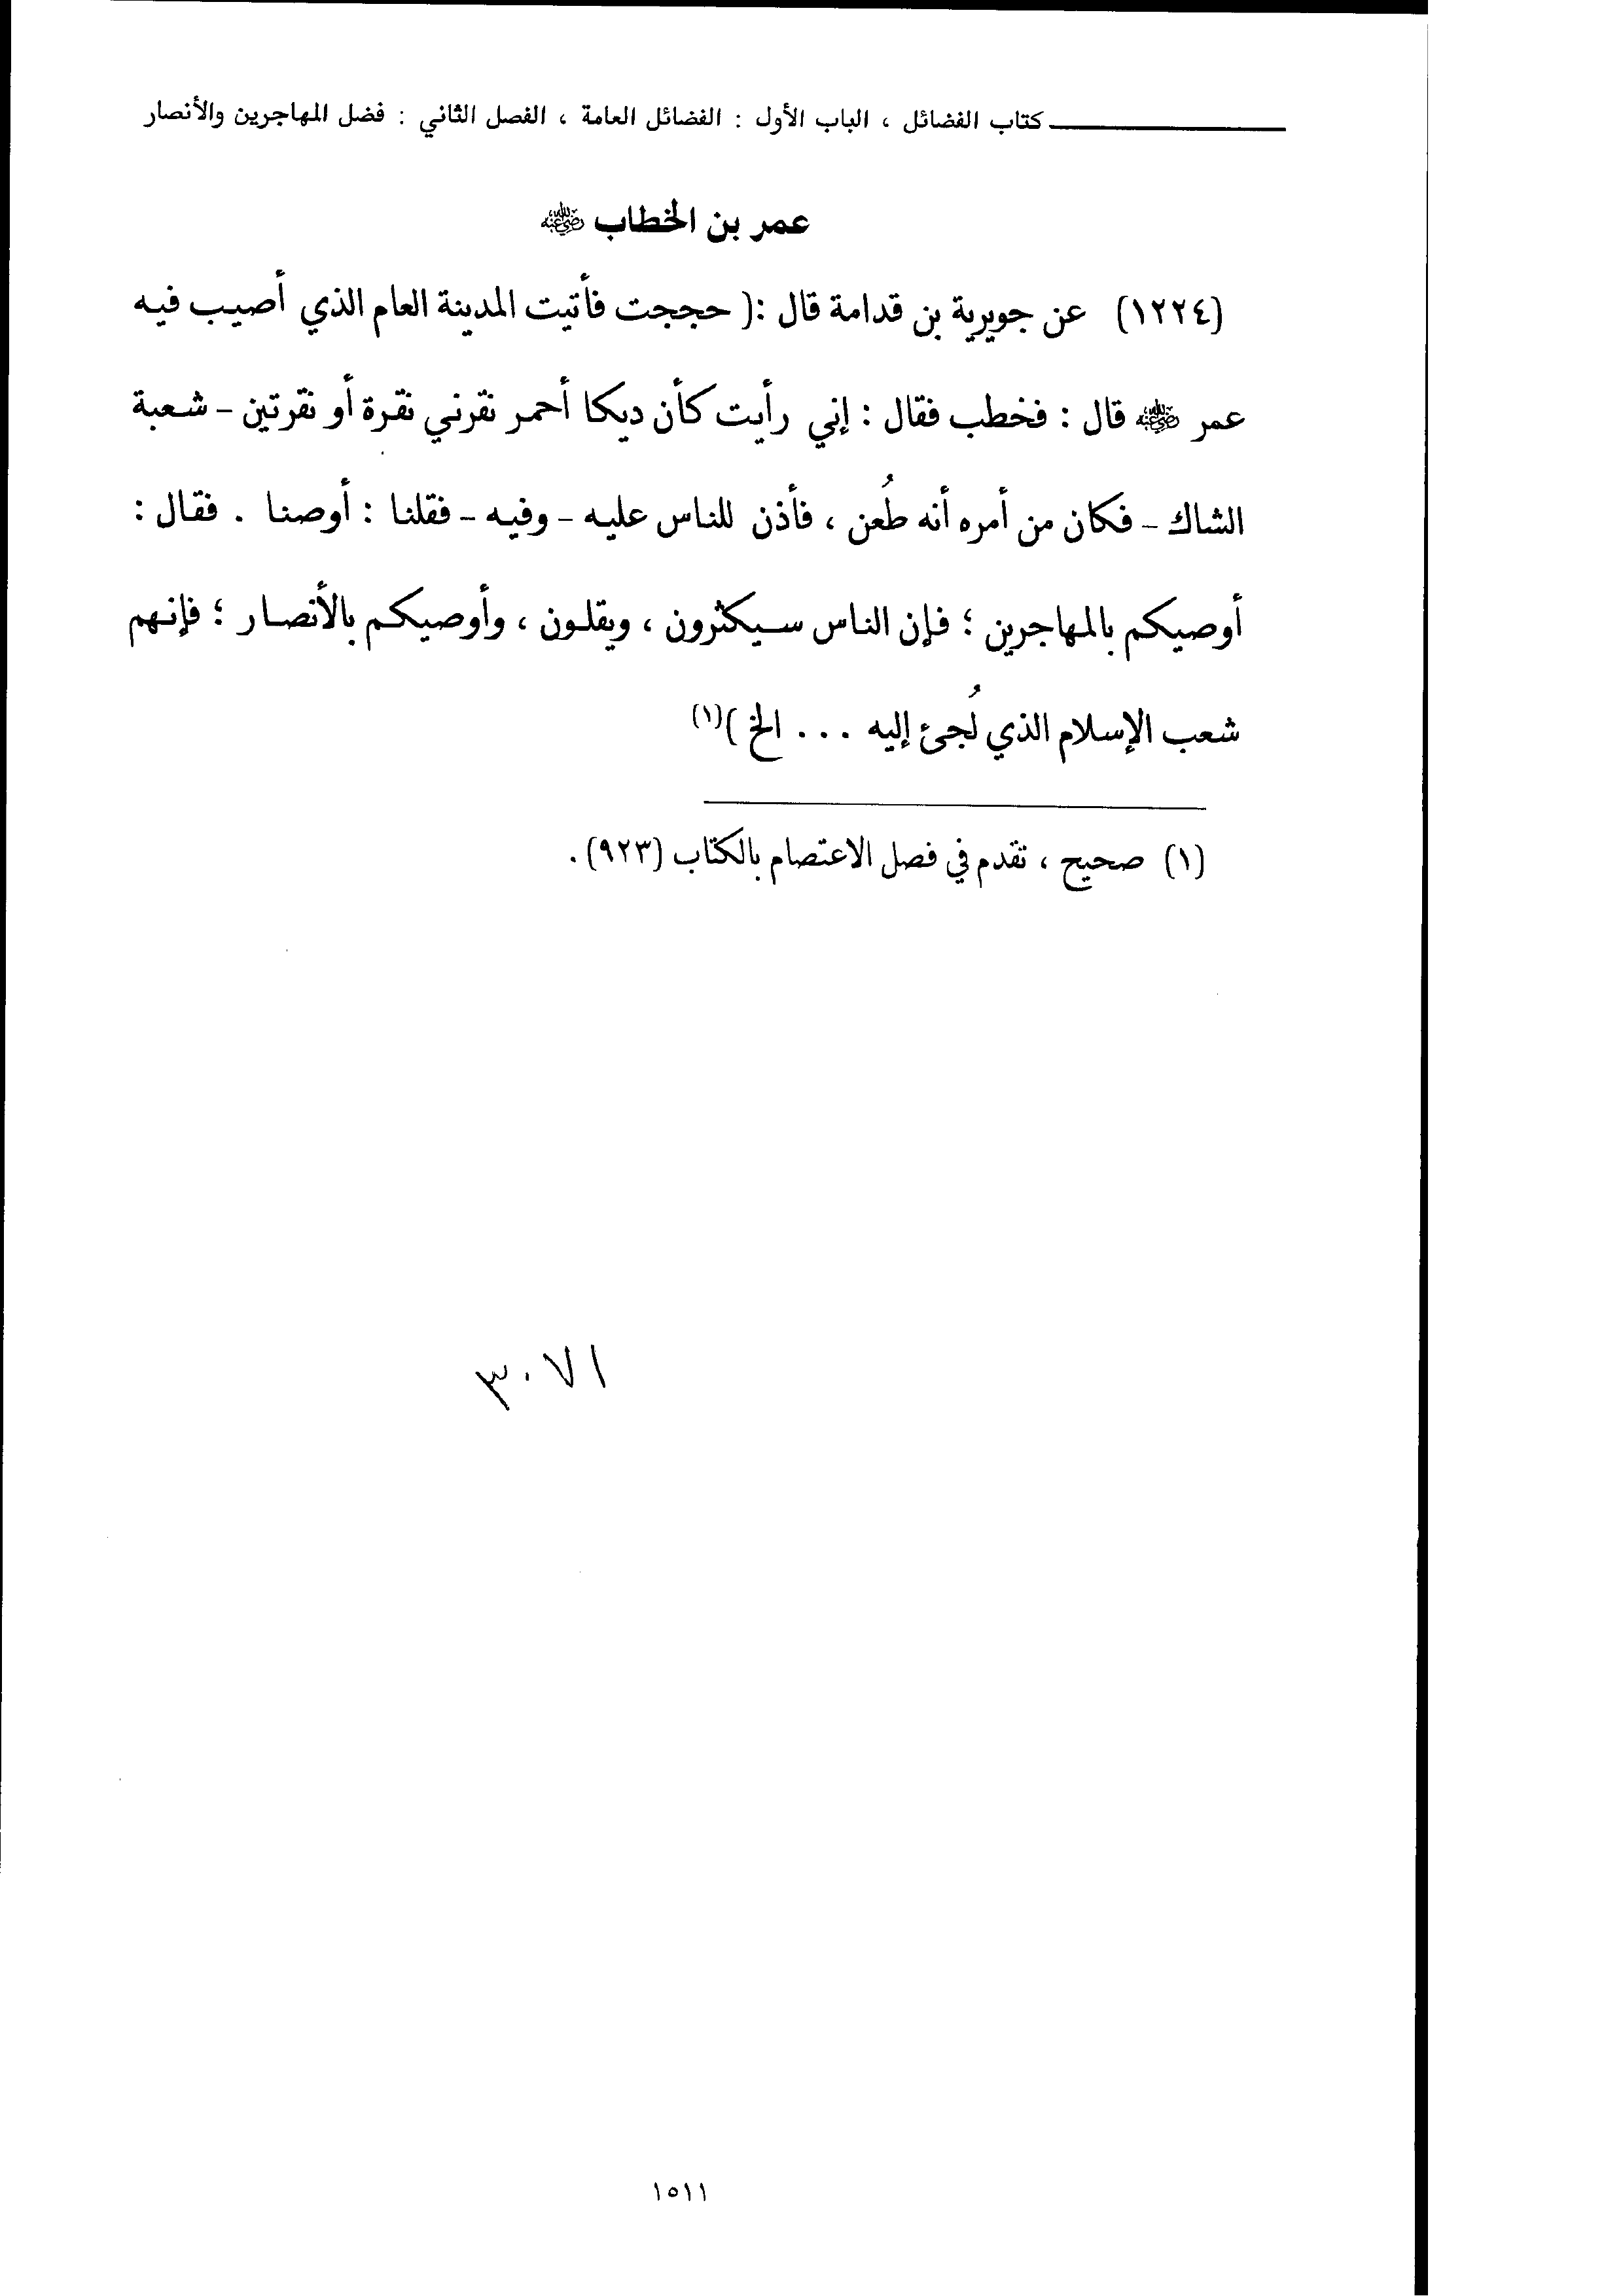 كتاب الفضائل ، الباب الأول : الفضائل العامة ، الفصل الثاني : فضل المهاجرين والأنصار
عمر بن الخطاب رضي الله عنه
(١٢٢٤) عن جويرية بن قدامة قال :( حججت فأتيت المدينة العام الذي أصيب فيه
عمر رضي الله عنه قال : فخطب فقال : إني رأيت كأن ديكا أحمر نقرني نقرة أو نقرتين – شعبة
الشاك – فكان من أمره أنه طُعن ، فأذن للناس عليه – وفيه – فقلنا : أوصنا . فقال :
أوصيكم بالمهاجرين ؛ فإن الناس سيكثرون ، ويقلون ، وأوصيكم بالأنصار ؛ فإنهم
شعب الإسلام الذي لُجئ إليه ... الخ )(١)
(١) صحيح ، تقدم في فصل الاعتصام بالكتاب (٩٢٣) .
٣٠٧١
١٥١١